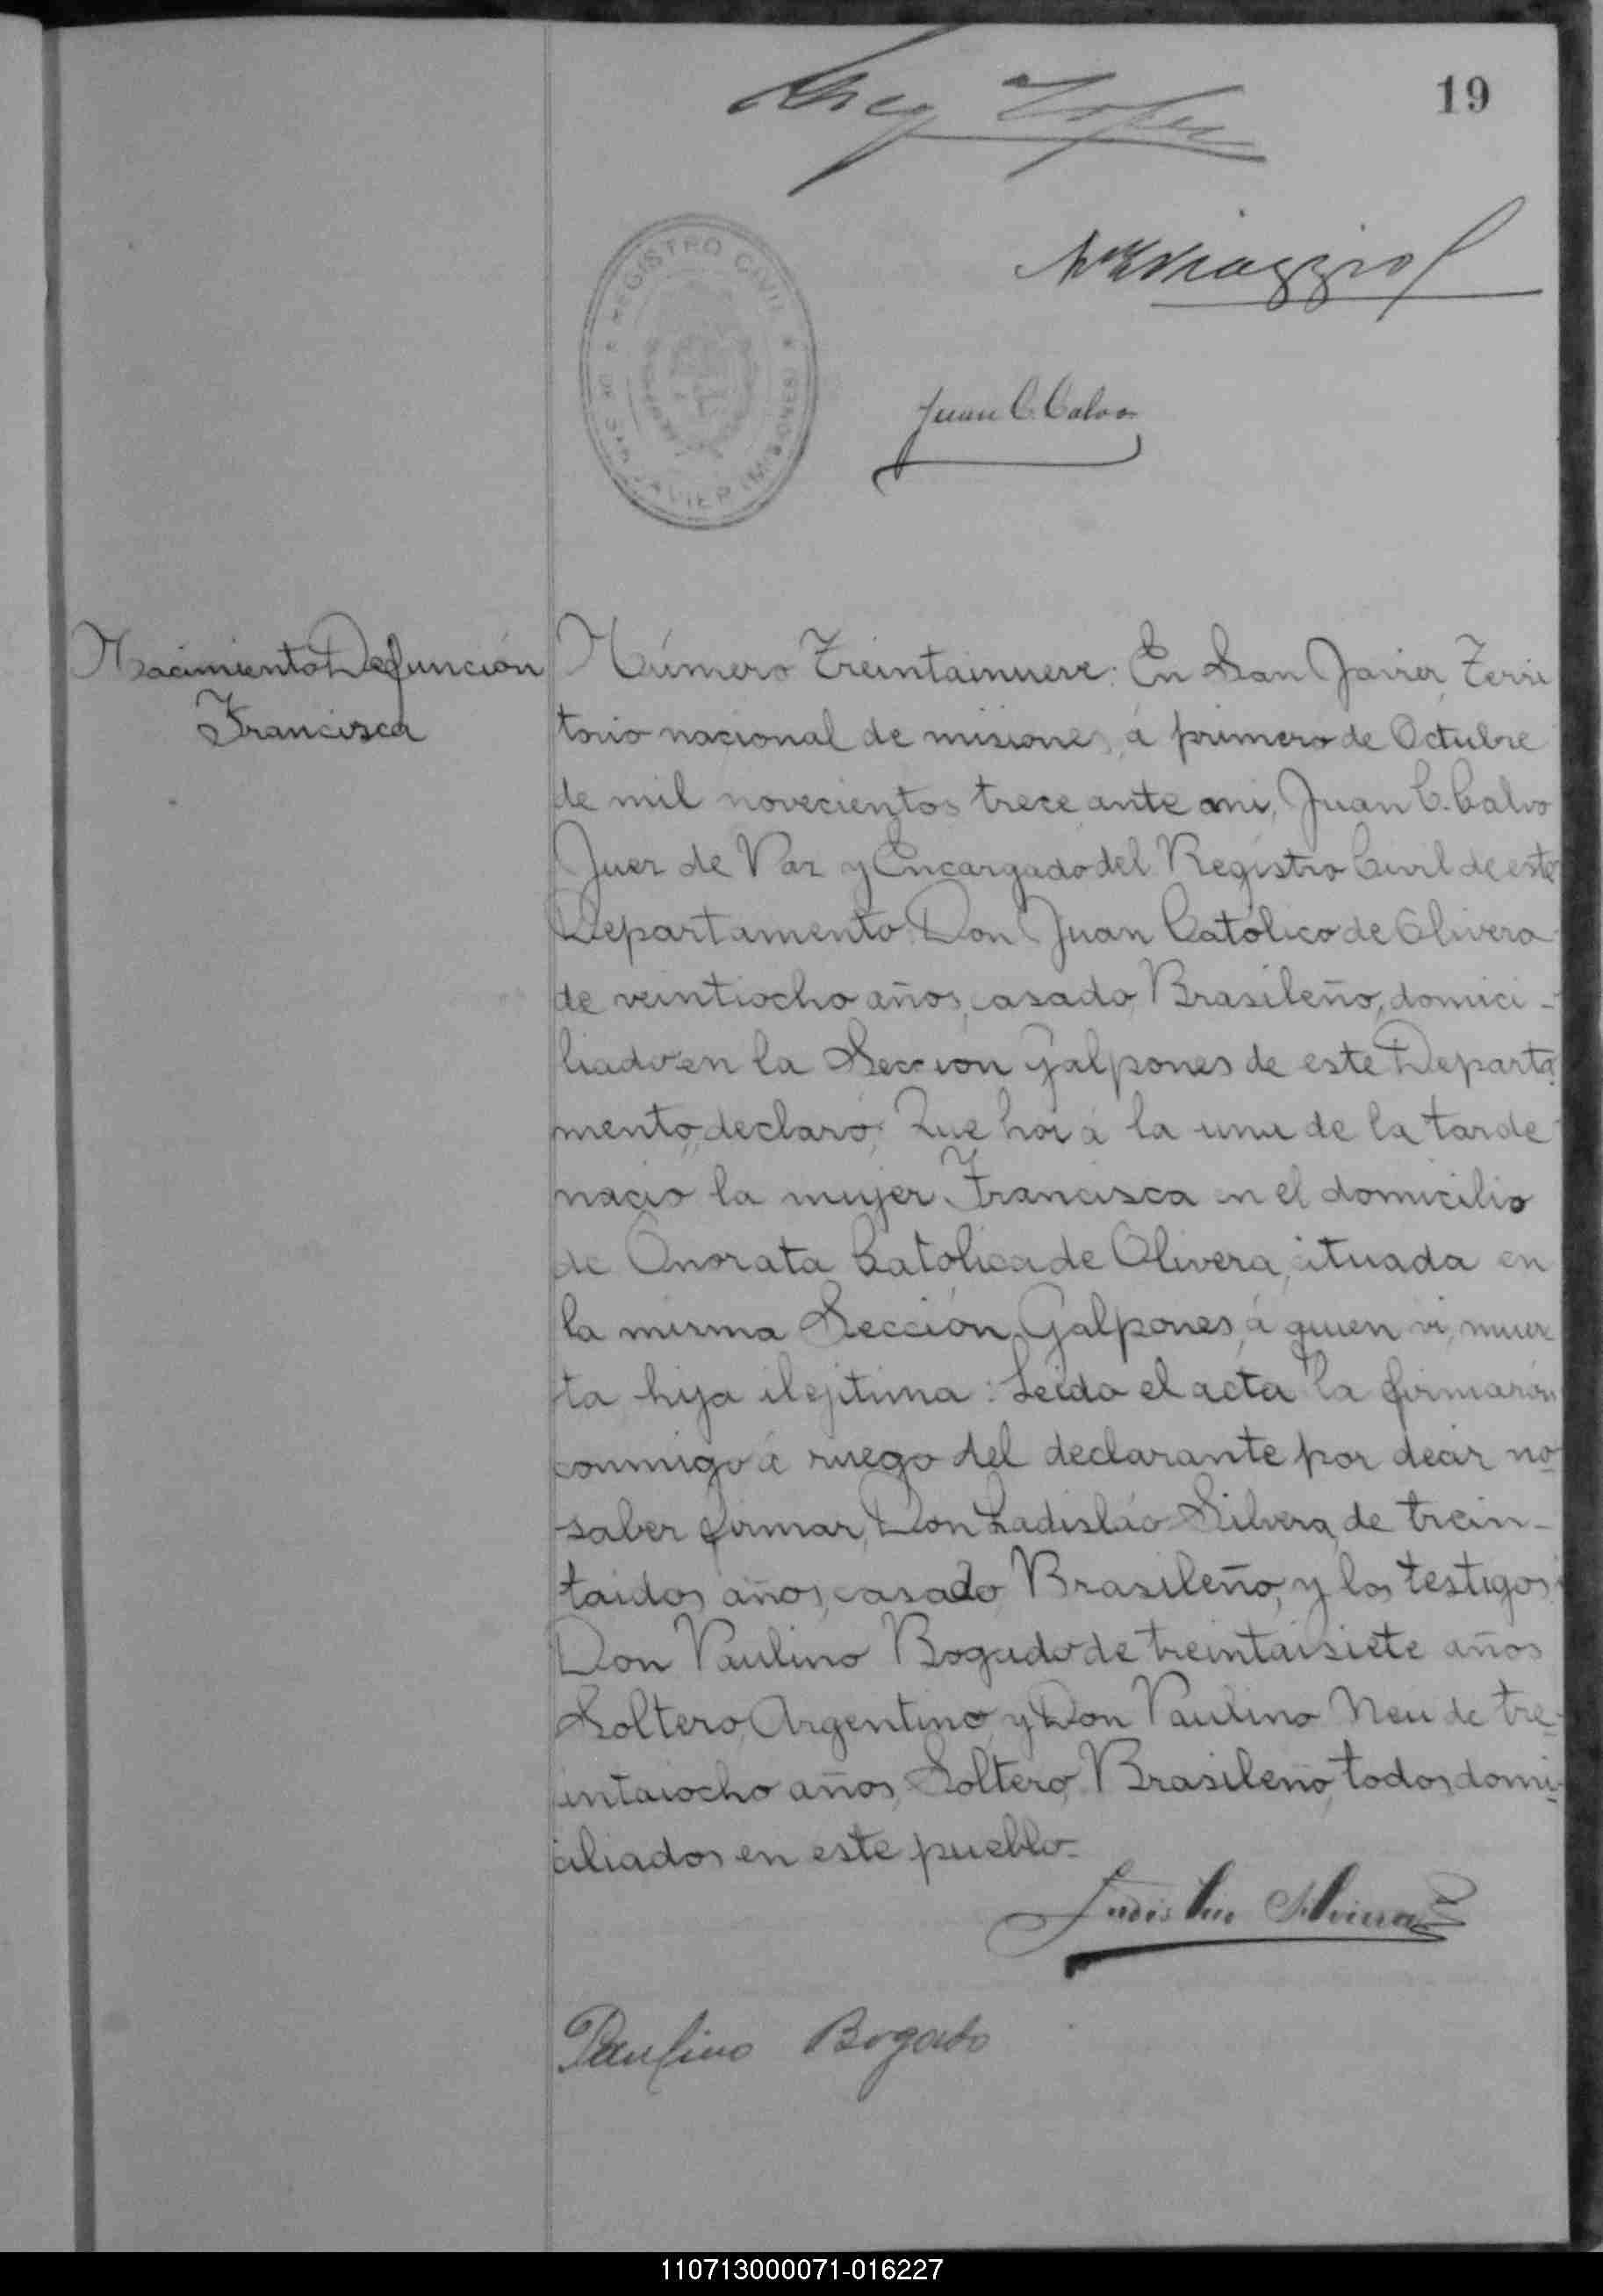 19
REGISTRO CIVIL
DE SAN JAVIER (MISIONES)
Juan C. Calvo
Nacimiento Defunción
Francisca
Número Treintainueve: En San Javier, Terri
torio nacional de misiones, á primero de Octubre
de mil novecientos trece, ante mi, Juan C. Calvo
Juez de Paz y Encargado del Registro Civil de este
Departamento: Don Juan Católico de Olivera
de veintiocho años, casado, Brasileño, domici-
liado en la Sección Galpones de este Departa
mento, declaró; Que hoi á la una de la tarde
nació la mujer Francisca en el domicilio
de Onorata Católica de Olivera, situada en
la misma Sección Galpones, á quien vi, muer
ta hija ilejitima: Leida el acta la firmarón
conmigo á ruego del declarante por decir no
saber firmar, Don Ladisláo Silvera, de trein-
taidos años, casado, Brasileño, y los testigos
Don Paulino Bogado de treintaisiete años
Soltero, Argentino, y Don Paulino Neu de tre-
intaiocho años, Soltero, Brasileño, todos domi-
ciliados en este pueblo-
Ladislao Silveira
Paulino Bogado
110713000071-016227